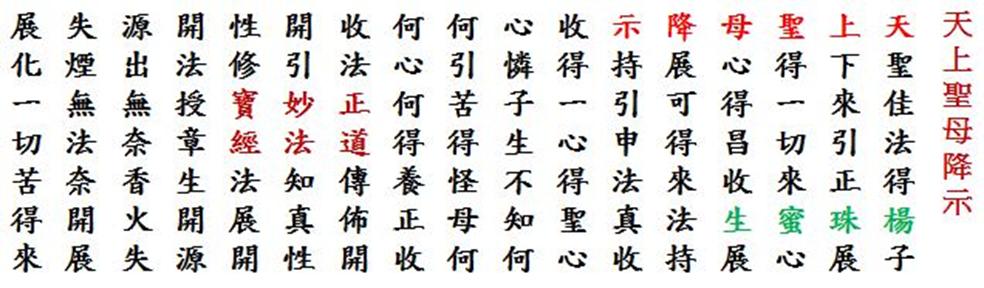 天上聖母降示
天聖佳法得楊子
上下來引正珠展
聖得一切來蜜心
母心得昌收生展
降展可得來法持
示持引申法真收
收得一心得聖心
心憐子生不知何
何引苦得怪母何
何心何得養正收
收法正道傳佈開
開引妙法知真性
性修寶經法展開
開法授章生開源
源出無奈香火失
失煙無法奈開展
展化一切苦得來